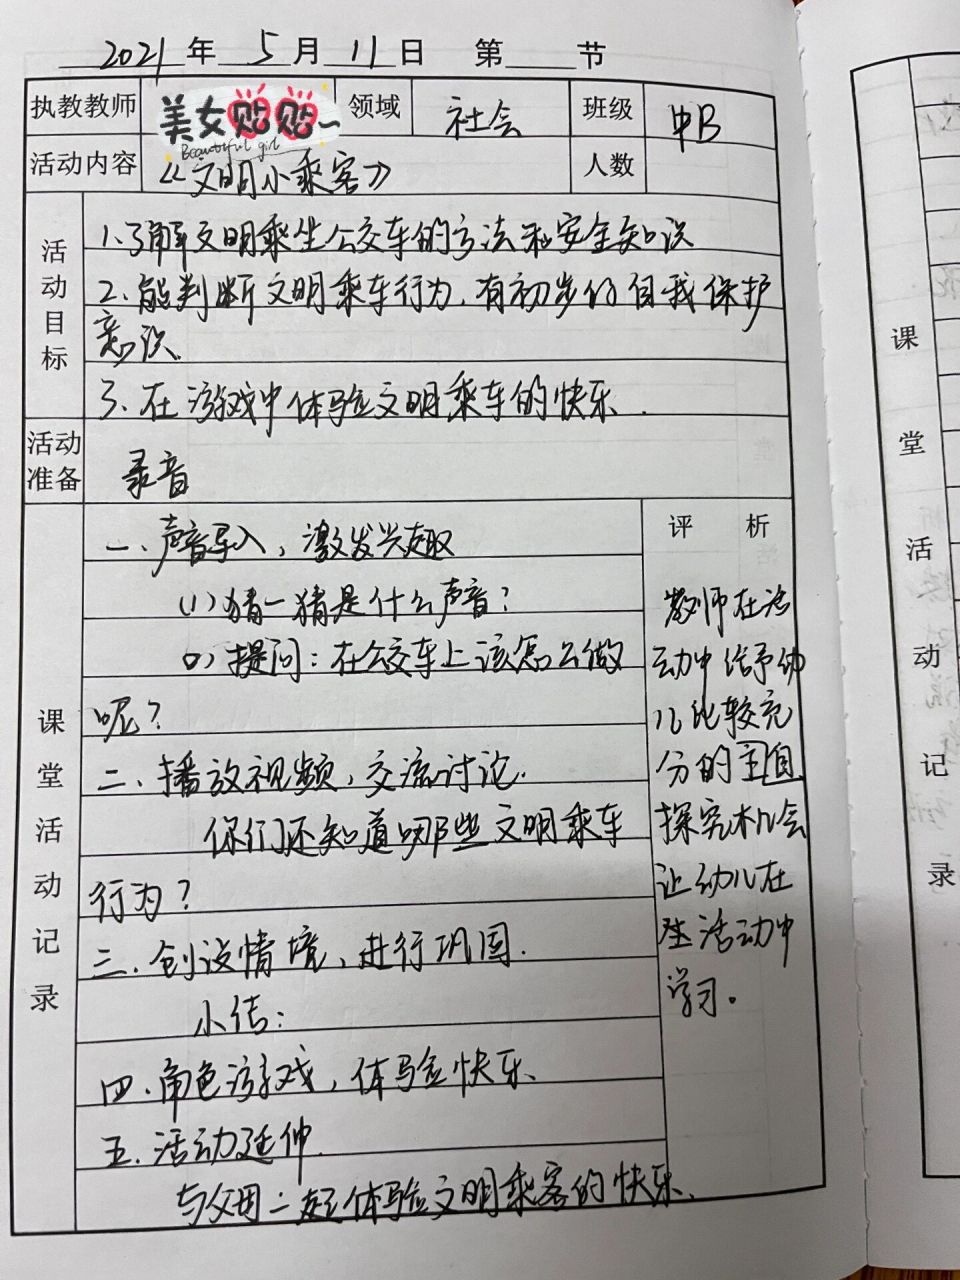 2021年5月11日 第 节
执教教师 美女贴贴~ 领域 社会 班级 中B
Beautiful girl
活动内容 《文明小乘客》 人数
活动目标
1.了解文明乘坐公交车的方法和安全知识
2.能判断文明乘车行为,有初步的自我保护
意识.
3.在游戏中体验文明乘车的快乐.
活动准备 录音
课堂活动记录
一、声音导入,激发兴趣
(1)猜一猜是什么声音?
(2)提问:在公交车上该怎么做
呢?
二、播放视频,交流讨论.
你们还知道哪些文明乘车
行为?
三、创设情境,进行巩固.
小结:
四、角色游戏,体验快乐、
五、活动延伸.
与父母一起体验文明乘客的快乐.
评 析
教师在活
动中给予幼
儿比较充
分的主自
探究机会
让幼儿在
生活动中
学习。
课堂活动记录